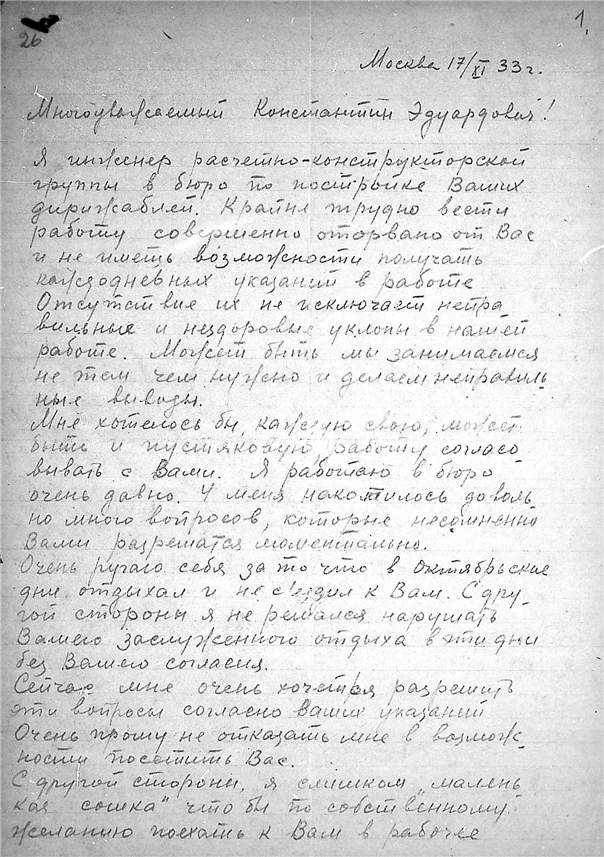 1.
26
Москва 17/XI 33 г.
Многоуважаемый Константин Эдуардович!
Я инженер расчетно-конструкторской
группы в бюро по постройке Ваших
дирижаблей. Крайне трудно вести
работу совершенно оторвано от Вас
и не иметь возможности получать
каждодневных указаний в работе
Отсутствие их не исключает непра
вильные и нездоровые уклоны в нашей
работе. Может быть мы занимаемся
не тем чем нужно и делаем неправиль
ные выводы.
Мне хотелось бы, каждую свою, может
быть и пустяковую, работу согласо
вывать с Вами. Я работаю в бюро
очень давно. У меня накопилось доволь
но много вопросов, которые несомненно
Вами разрешатся моментально.
Очень ругаю себя за то что в Октябрьские
дни отдыхал и не съездил к Вам. С дру
гой стороны я не решался нарушать
Вашего заслуженного отдыха в эти дни
без Вашего согласия.
Сейчас мне очень хочется разрешить
эти вопросы согласно Ваших указаний
Очень прошу не отказать мне в возмож
ности посетить Вас.
С другой стороны, я слишком „малень
кая сошка" что бы по собственному
желанию поехать к Вам в рабочее